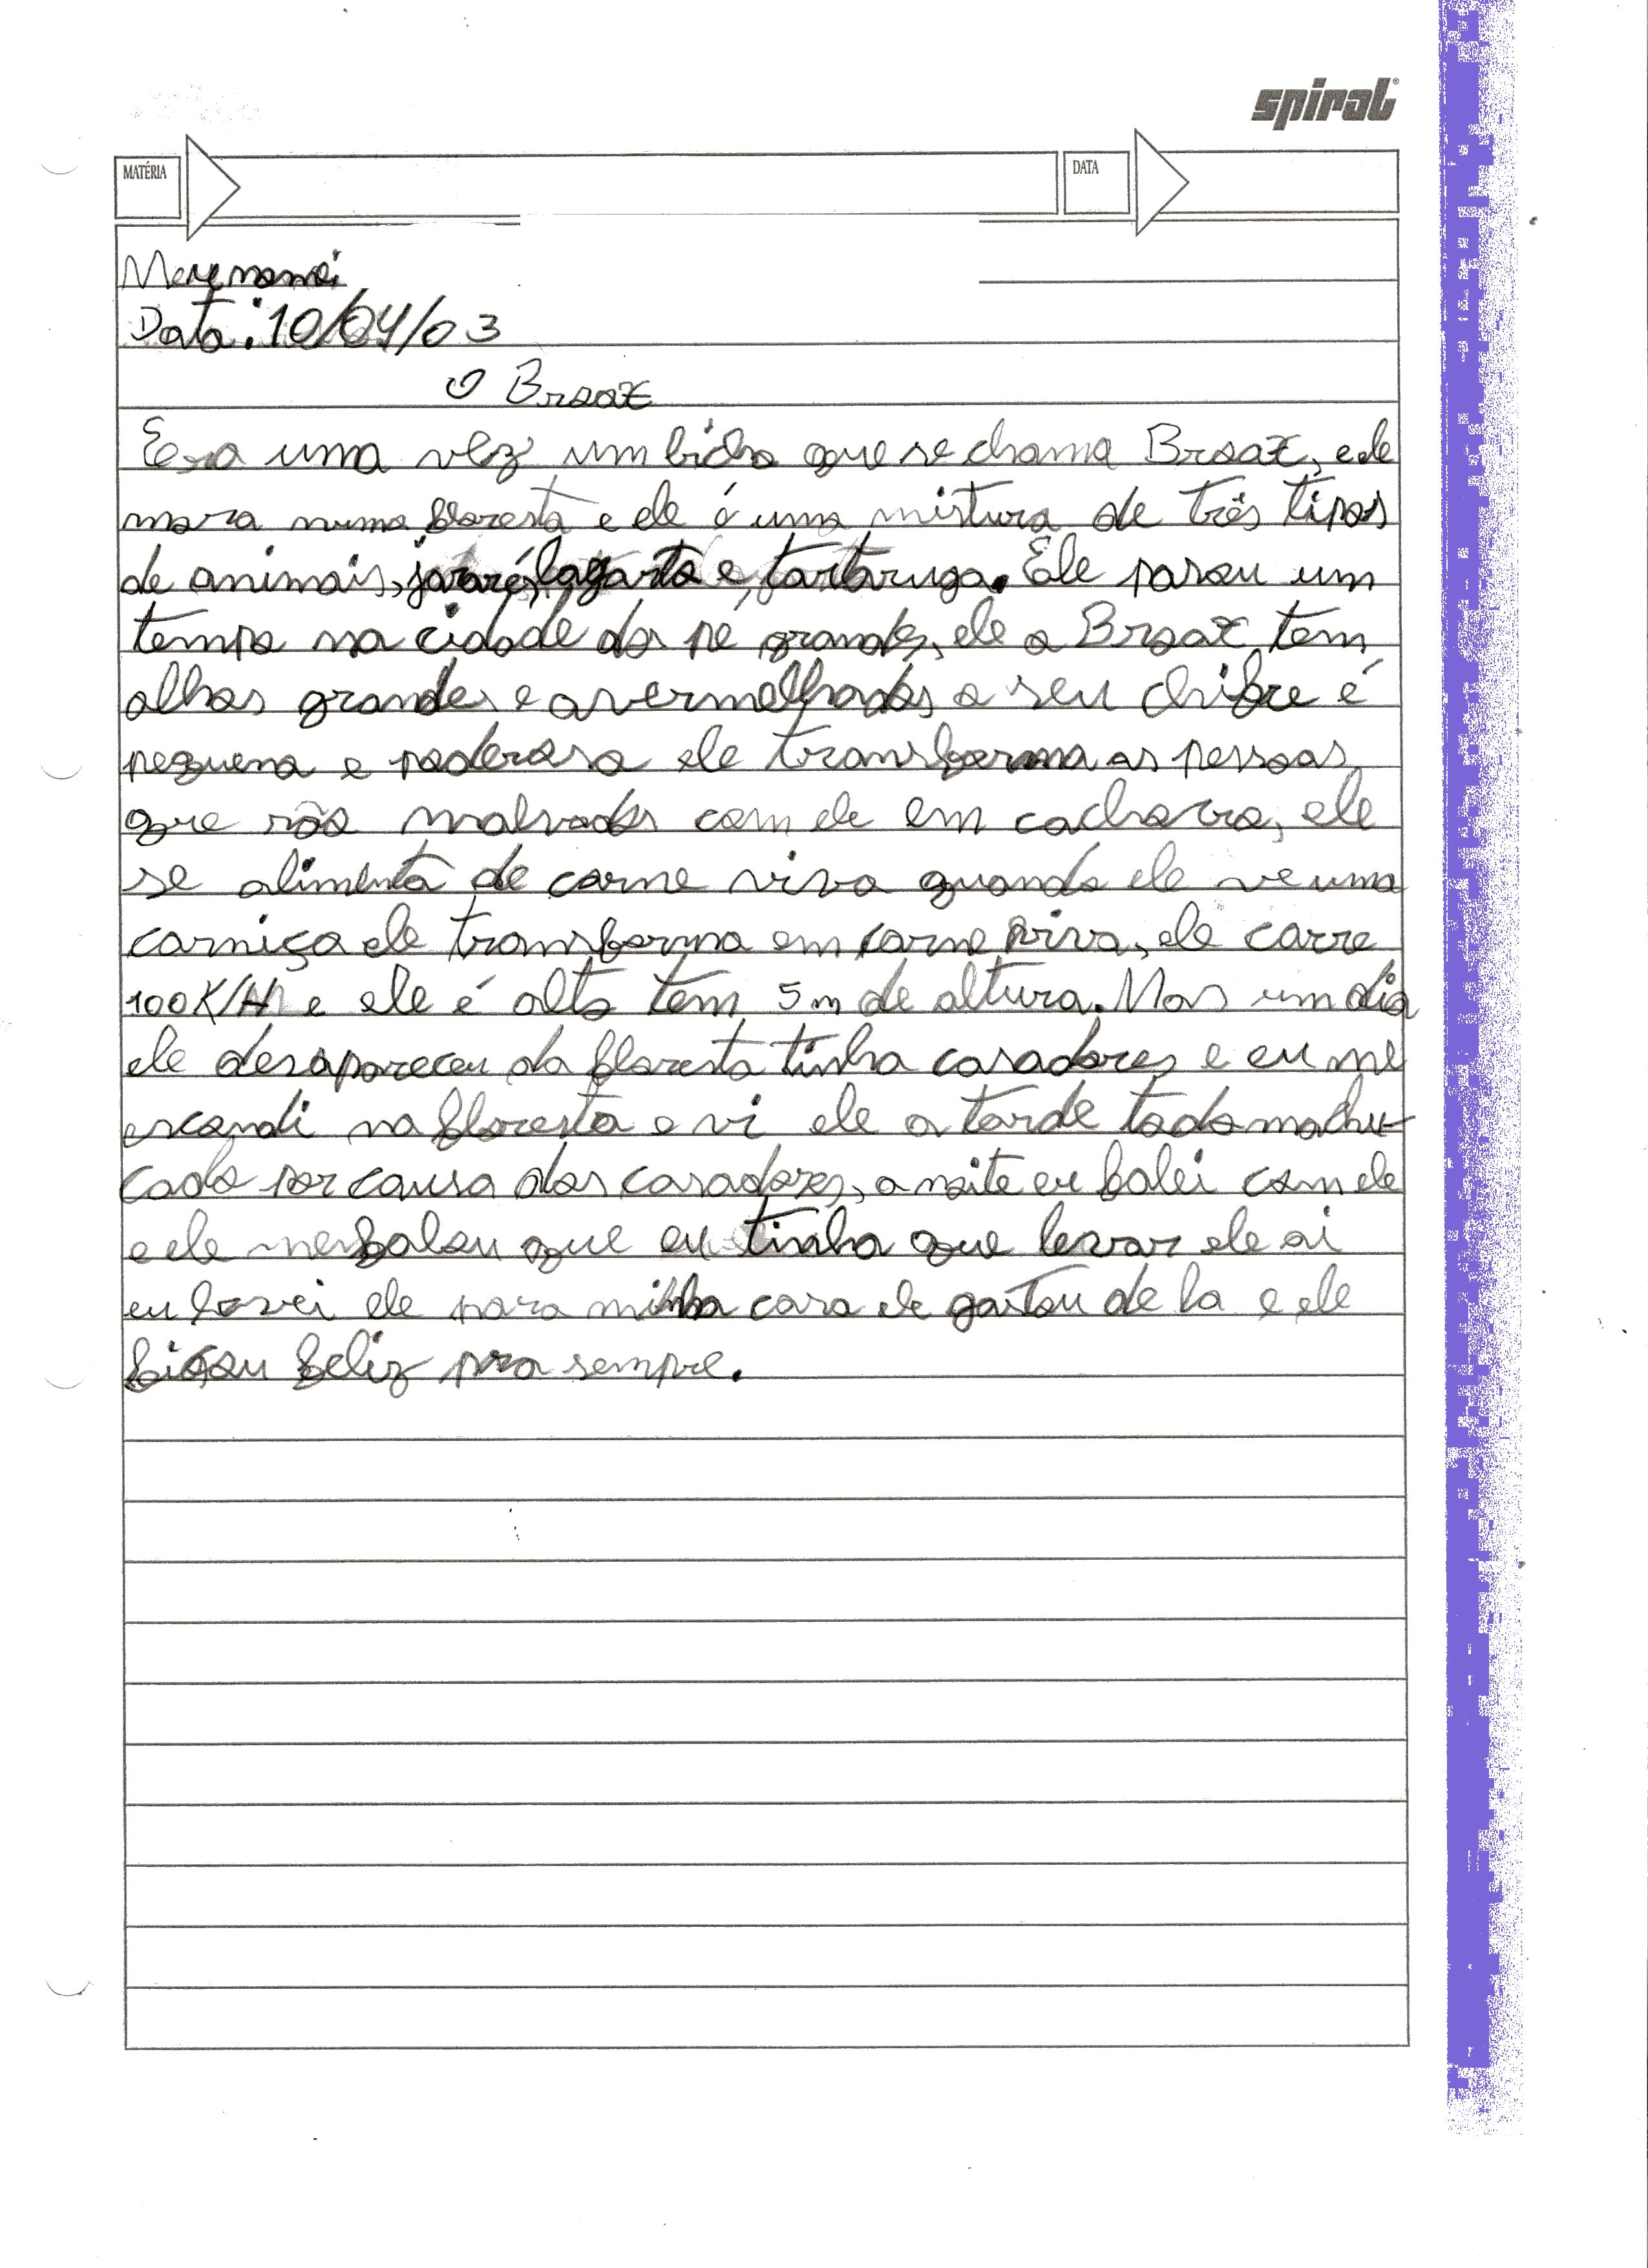 spiral
MATÉRIA DATA
Data: 10/04/03
O Brsax
Era uma vez um bicho que se chama Brsax, ele
mora numa floresta e ele é uma mistura de três tipos
de animais, jacaré, lagarto e, tartaruga. Ele pasou um
tempo na cidade dos pé grandes, ele o Brsax tem
olhos grandes e avermelhados o seu chifre é
pequeno e poderoso ele transforma as pessoas
que são malvados com ele em cachorro, ele
se alimenta de carne viva quando ele ve uma
carniça ele transforma em carne viva, ele corre
100K/H e ele é alto tem 5m de altura. Mas um dia
ele desapareceu da floresta tinha casadores e eu me
escondi na floresta e vi ele a tarde todo machu-
cado por causa dos casadores, a noite eu falei com ele
e ele me falou que eu tinha que levar ele ai
eu levei ele para minha casa ele gostou de la e ele
ficou feliz pra sempre.